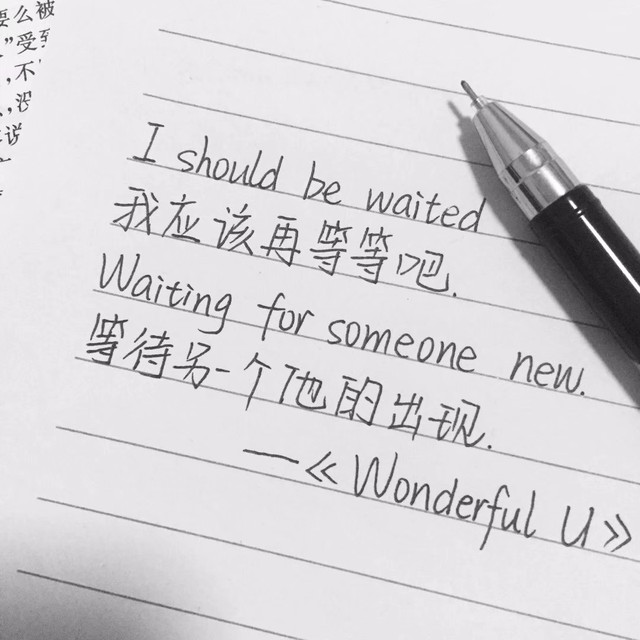 要么被
”受到
，不
，没
I should be waited
我应该再等等吧.
Waiting for someone new.
等待另一个他的出现.
—《Wonderful U》